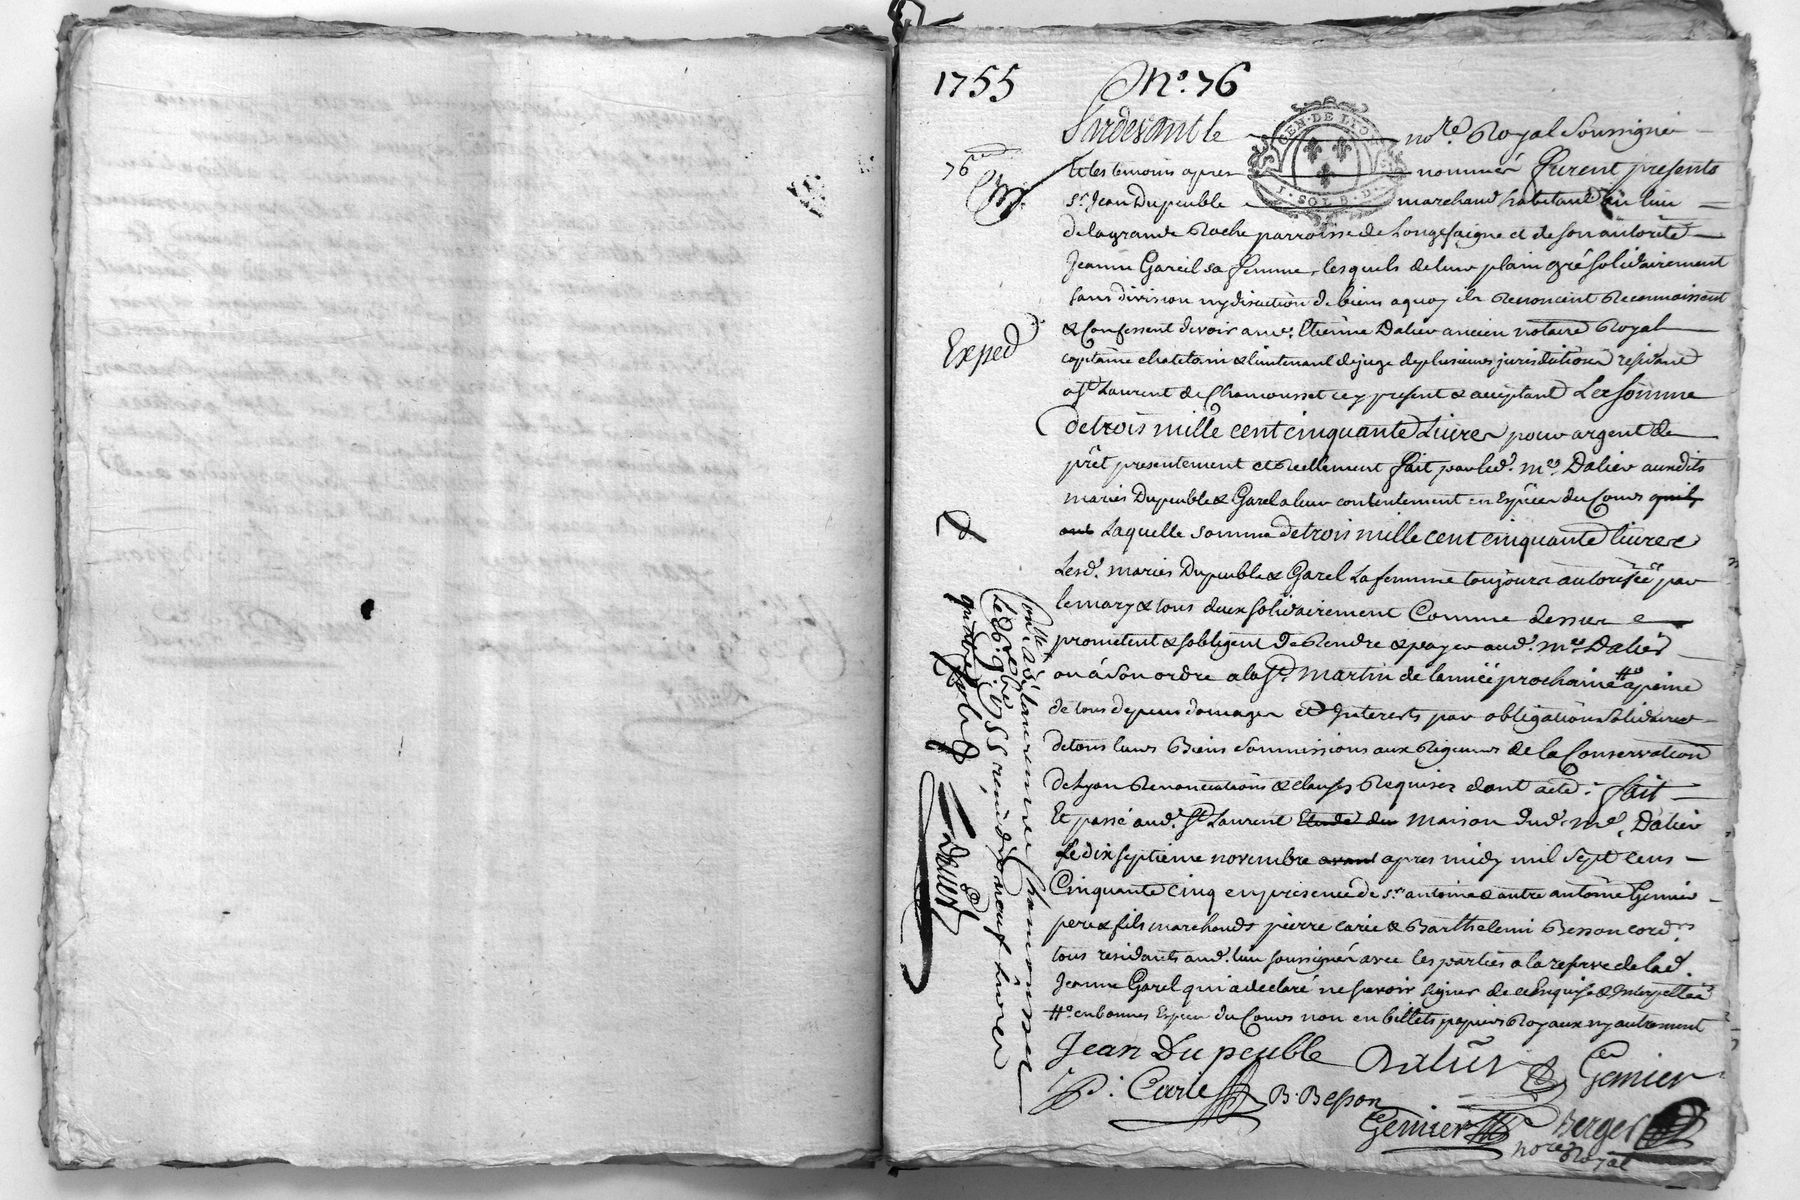 1755
N.° 76
Pardevant le no.re Royal soussigné
GEN·DE LYON
1·SOL 8·D·
76
et les temoins apres nommés furent presents
S.r Jean Dupeuble marchand habitant au lieu
de la grande Roche parroisse de Longesaigne et de son autorité
Jeanne Gareil sa femme, lesquels de leur plain gré solidairement
sans division ny discution de biens a quoy ils Renoncent Reconnaissent
Exped
& Confessent devoir a me. Etienne Dalier ancien notaire Royal
capitaine chatelain & lieutenant de juge de plusieurs jurisdictions residant
a St Laurent de Chamousset icy present & acceptant La somme
de trois mille cent cinquante Livres pour argent de
prêt presentement et Reellement fait par led. me Dalier auxdits
mariés Dupeuble & Garel a leur contentement en Espèces du Cours qu'ils
ont Laquelle somme de trois mille cent cinquante livres
Lesd. mariés Dupeuble & Garel La femme toujours autorisée par
le mary & tous deux solidairement Comme dessus
promettent & s'obligent de Rendre & payer aud. me Dalier
ou à son ordre a la St martin de l'année prochaine # a peine
de tous depens domages et Interests par obligation solidaire
de tous leurs Biens soumissions aux Rigueurs de la Conservation
de Lyon Renonciations & clauses Requises dont acte. fait
Et passé aud. St Laurent Etude du maison dud. me. Dalier
Le dix septieme novembre avant apres midy mil sept cens
Cinquante cinq en presence de Sr. antoine & autre antoine Genier
pere & fils marchands pierre Carie & Barthelemi Besson cord.rs
tous residants aud. lieu soussignés avec les parties a la reserve de lad.
Jeanne Garel qui a declaré ne sçavoir signer de ce Enquise & Interpellée
# en bonnes Especes du Cours non en billets papiers Royaux ny autrement
Con.llé à St laurent de Chamousset
Le 9bre 1755 reçu dix neuf livres
quatre sols
Dalier
Jean Dupeuble
Dalier
Genier
P. Carie
B. Besson
Genier fils
Berger
no.re Royal